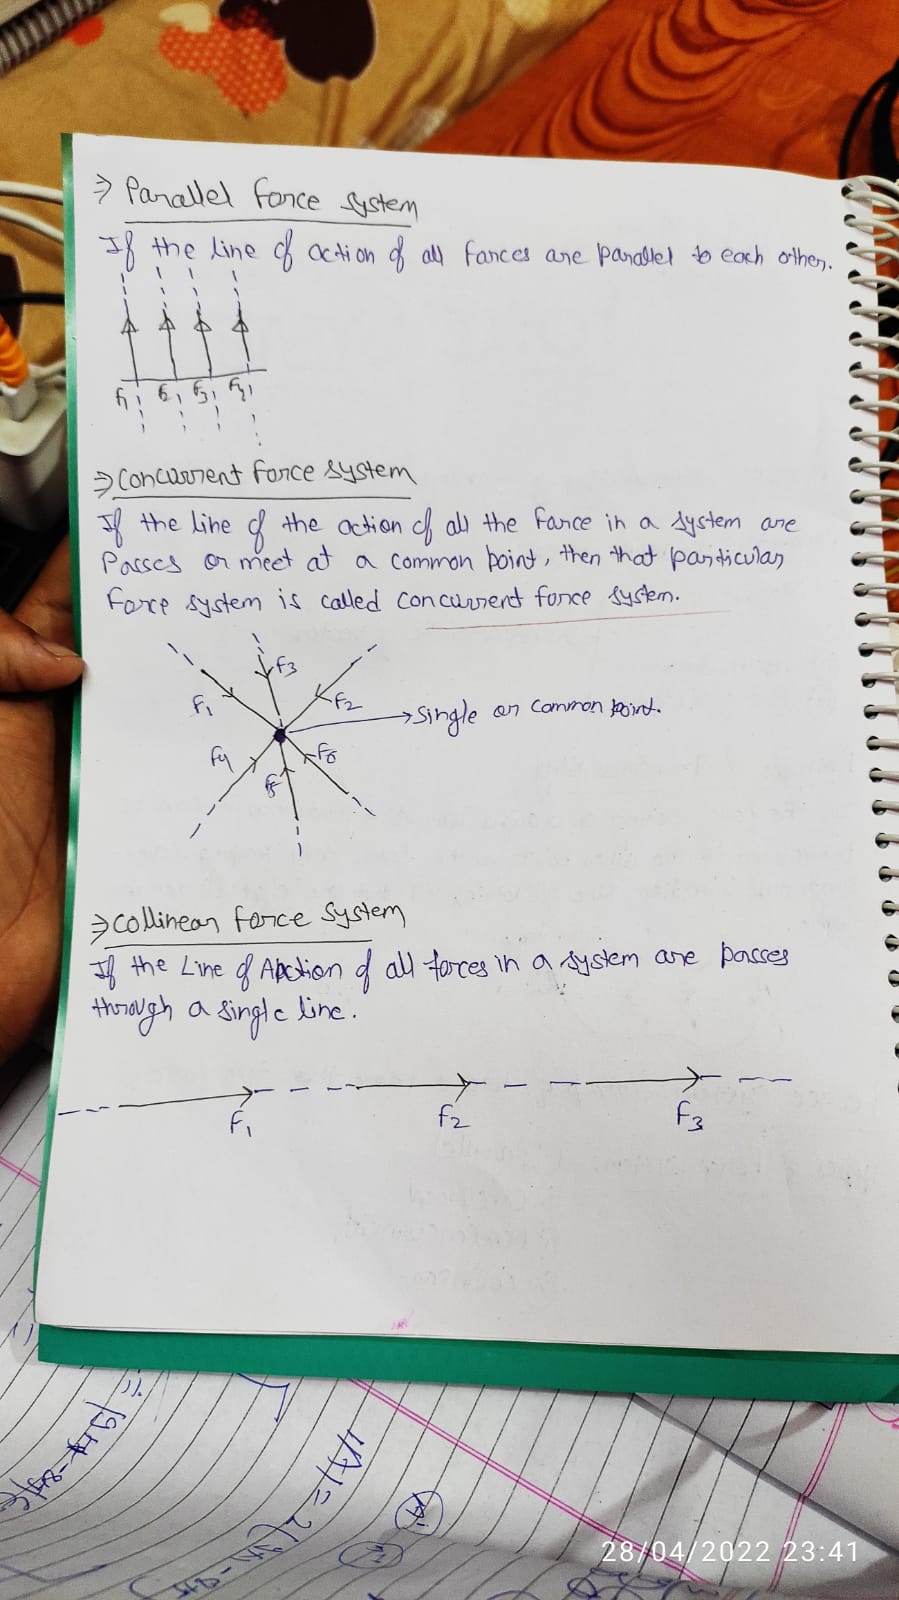 ⇒ Parallel force system
If the line of action of all forces are parallel to each other.
F1 F2 F3 F4
⇒ Concurrent force system
If the line of the action of all the force in a system are
Passes or meet at a common point, then that particular
force system is called concurrent force system.
F3
F1 F2
→ Single or common point.
F4 F6
F5
⇒ Collinear force system
If the Line of Action of all forces in a system are passes
through a single line.
F1 F2 F3
28/04/2022 23:41